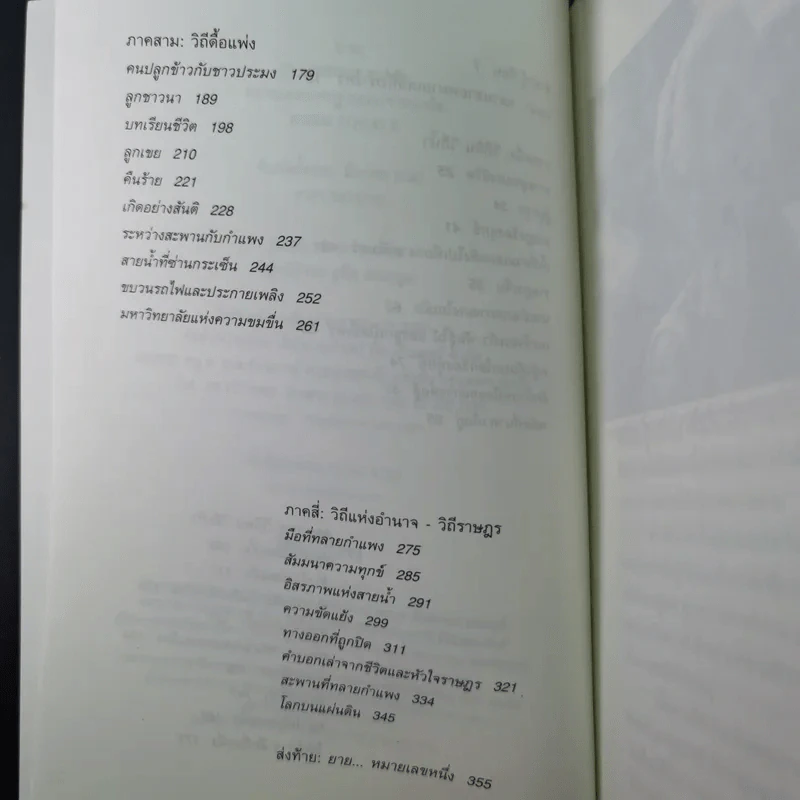 ภาคสาม: วิถีดื้อแพ่ง
คนปลูกข้าวกับชาวประมง 179
ลูกชาวนา 189
บทเรียนชีวิต 198
ลูกเขย 210
คืนร้าย 221
เกิดอย่างสันติ 228
ระหว่างสะพานกับกำแพง 237
สายน้ำที่ซ่านกระเซ็น 244
ขบวนรถไฟและประกายเพลิง 252
มหาวิทยาลัยแห่งความขมขื่น 261
ภาคสี่: วิถีแห่งอำนาจ - วิถีราษฎร
มือที่ทลายกำแพง 275
สัมมนาความทุกข์ 285
อิสรภาพแห่งสายน้ำ 291
ความขัดแย้ง 299
ทางออกที่ถูกปิด 311
คำบอกเล่าจากชีวิตและหัวใจราษฎร 321
สะพานที่ทลายกำแพง 334
โลกบนแผ่นดิน 345
ส่งท้าย: ยาย... หมายเลขหนึ่ง 355